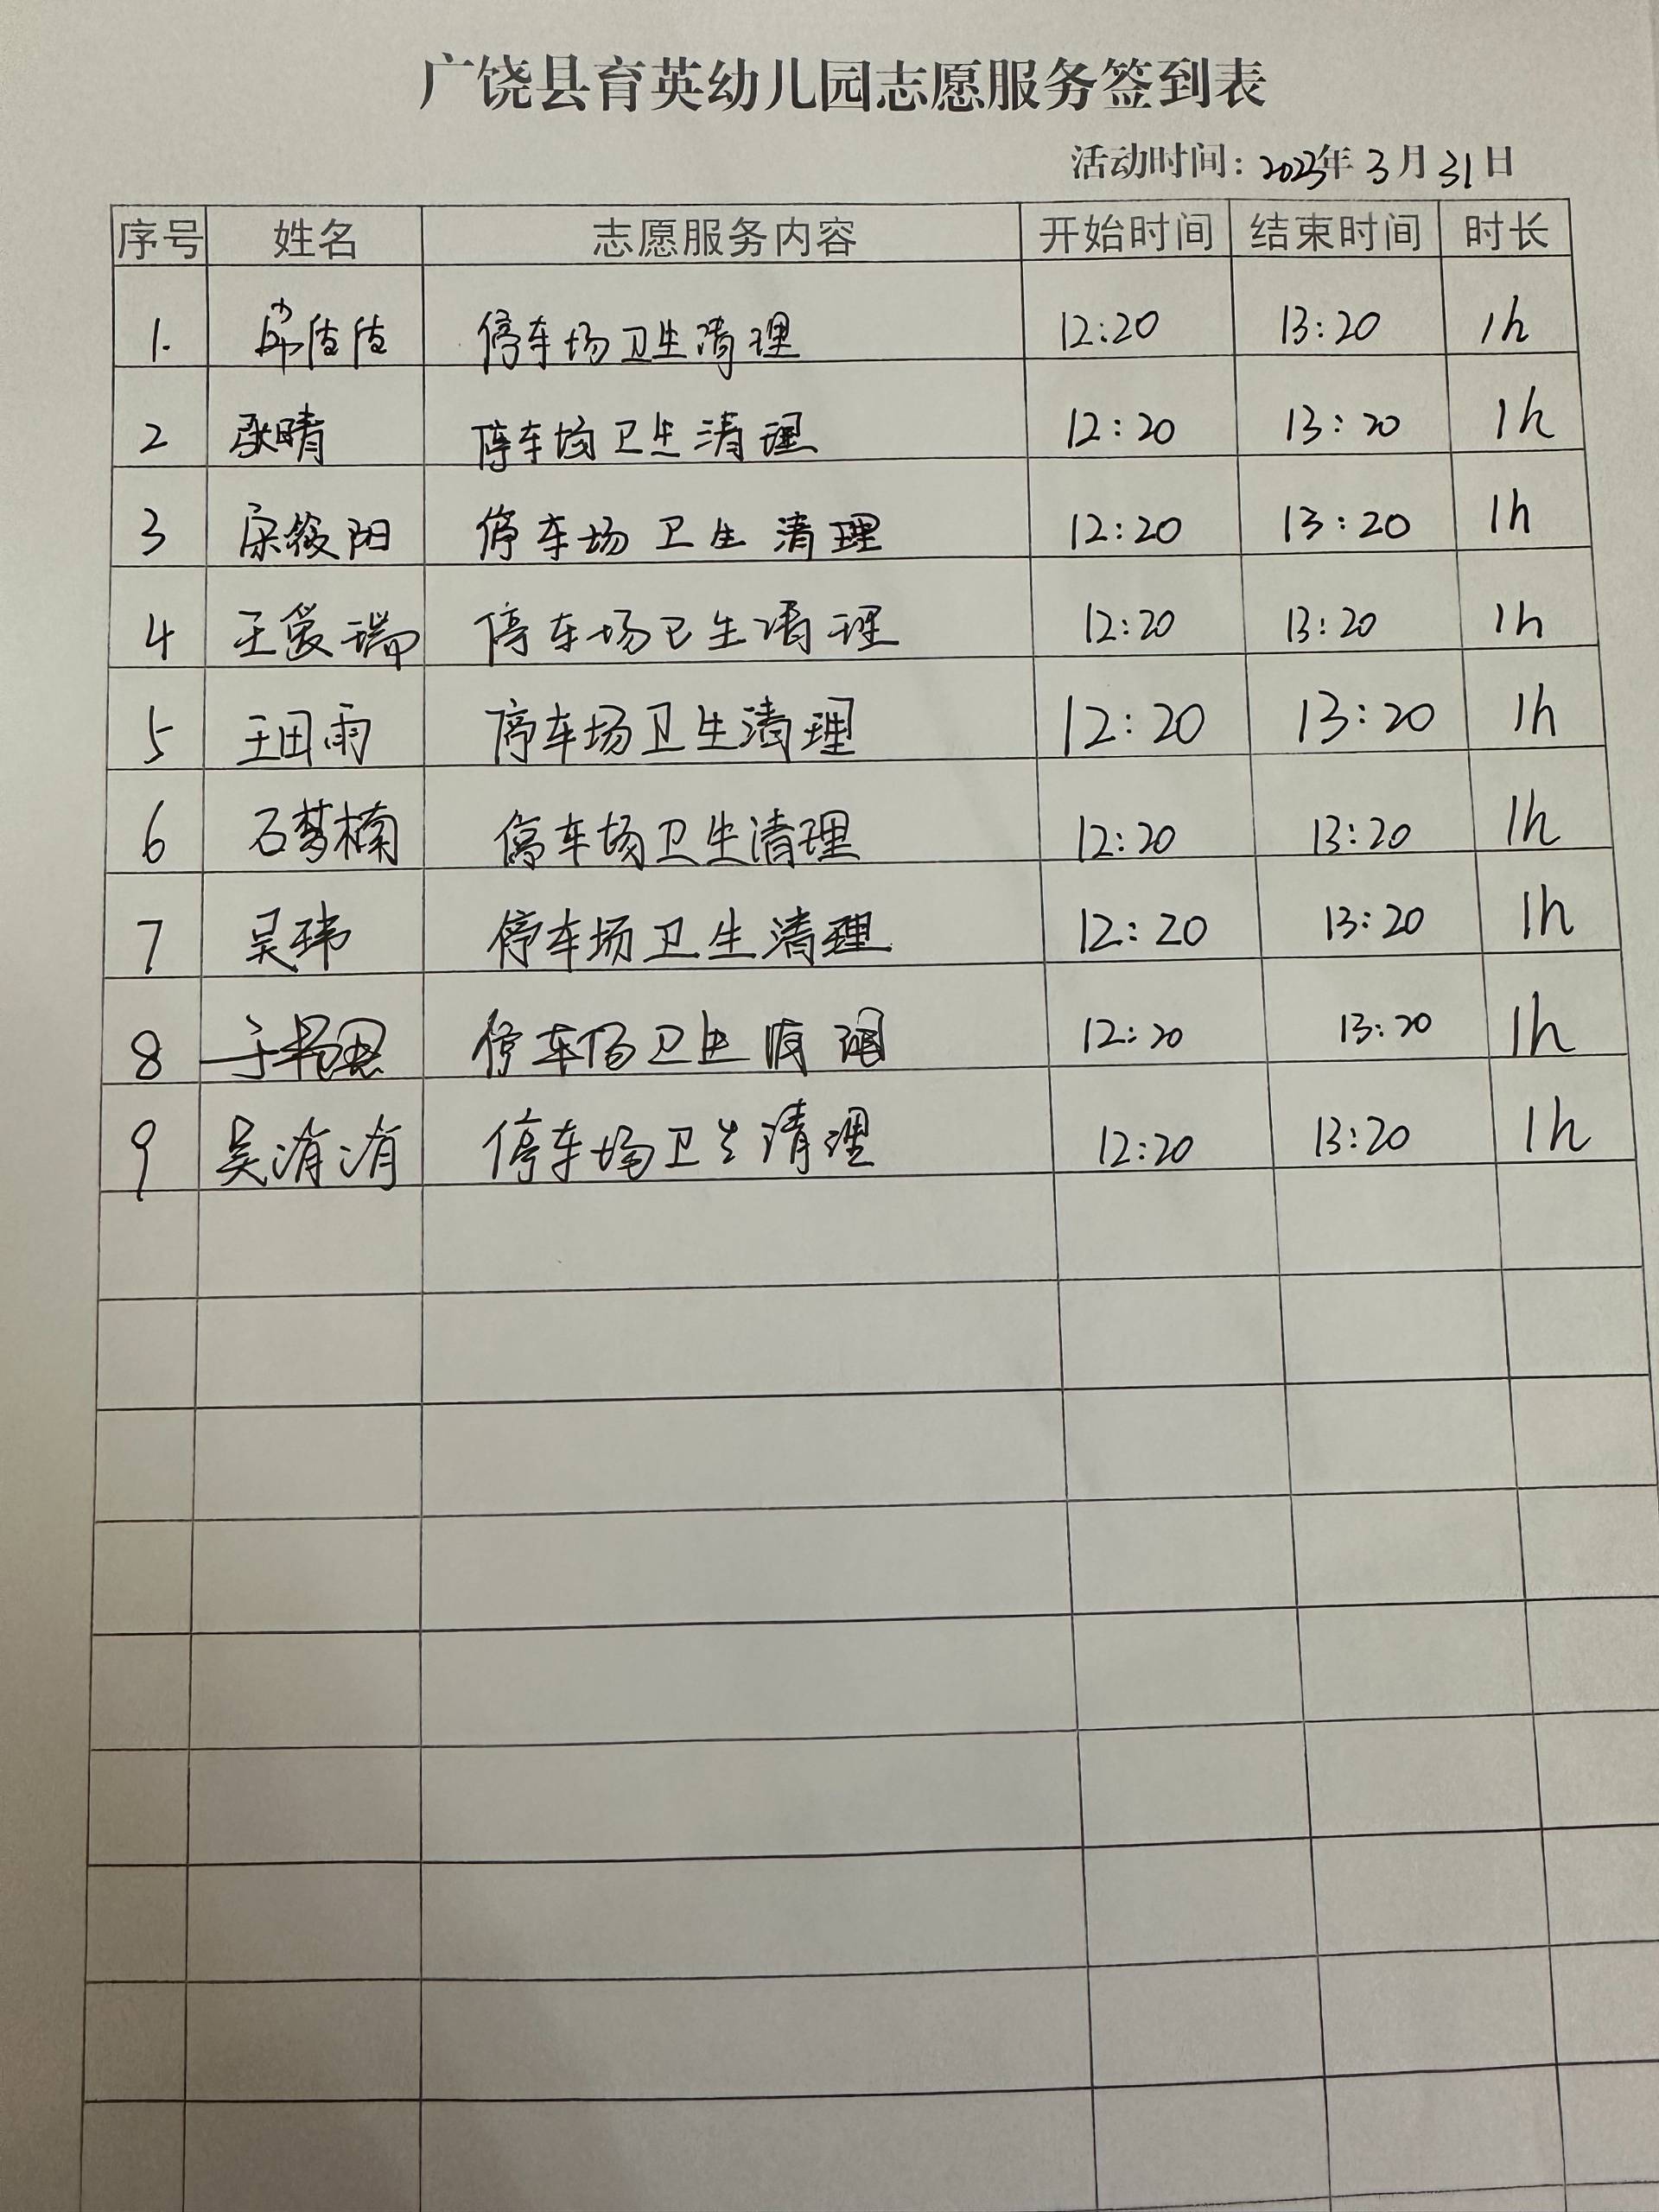 广饶县育英幼儿园志愿服务签到表
活动时间：2023年3月31日
序号 姓名 志愿服务内容 开始时间 结束时间 时长
1. 停车场卫生清理 12:20 13:20 1h
2 张晴 停车场卫生清理 12:20 13:20 1h
3 宋筱阳 停车场卫生清理 12:20 13:20 1h
4 王爱瑞 停车场卫生清理 12:20 13:20 1h
5 王田雨 停车场卫生清理 12:20 13:20 1h
6 石梦楠 停车场卫生清理 12:20 13:20 1h
7 吴玮 停车场卫生清理 12:20 13:20 1h
8 停车场卫生清理 12:20 13:20 1h
9 吴洧洧 停车场卫生清理 12:20 13:20 1h